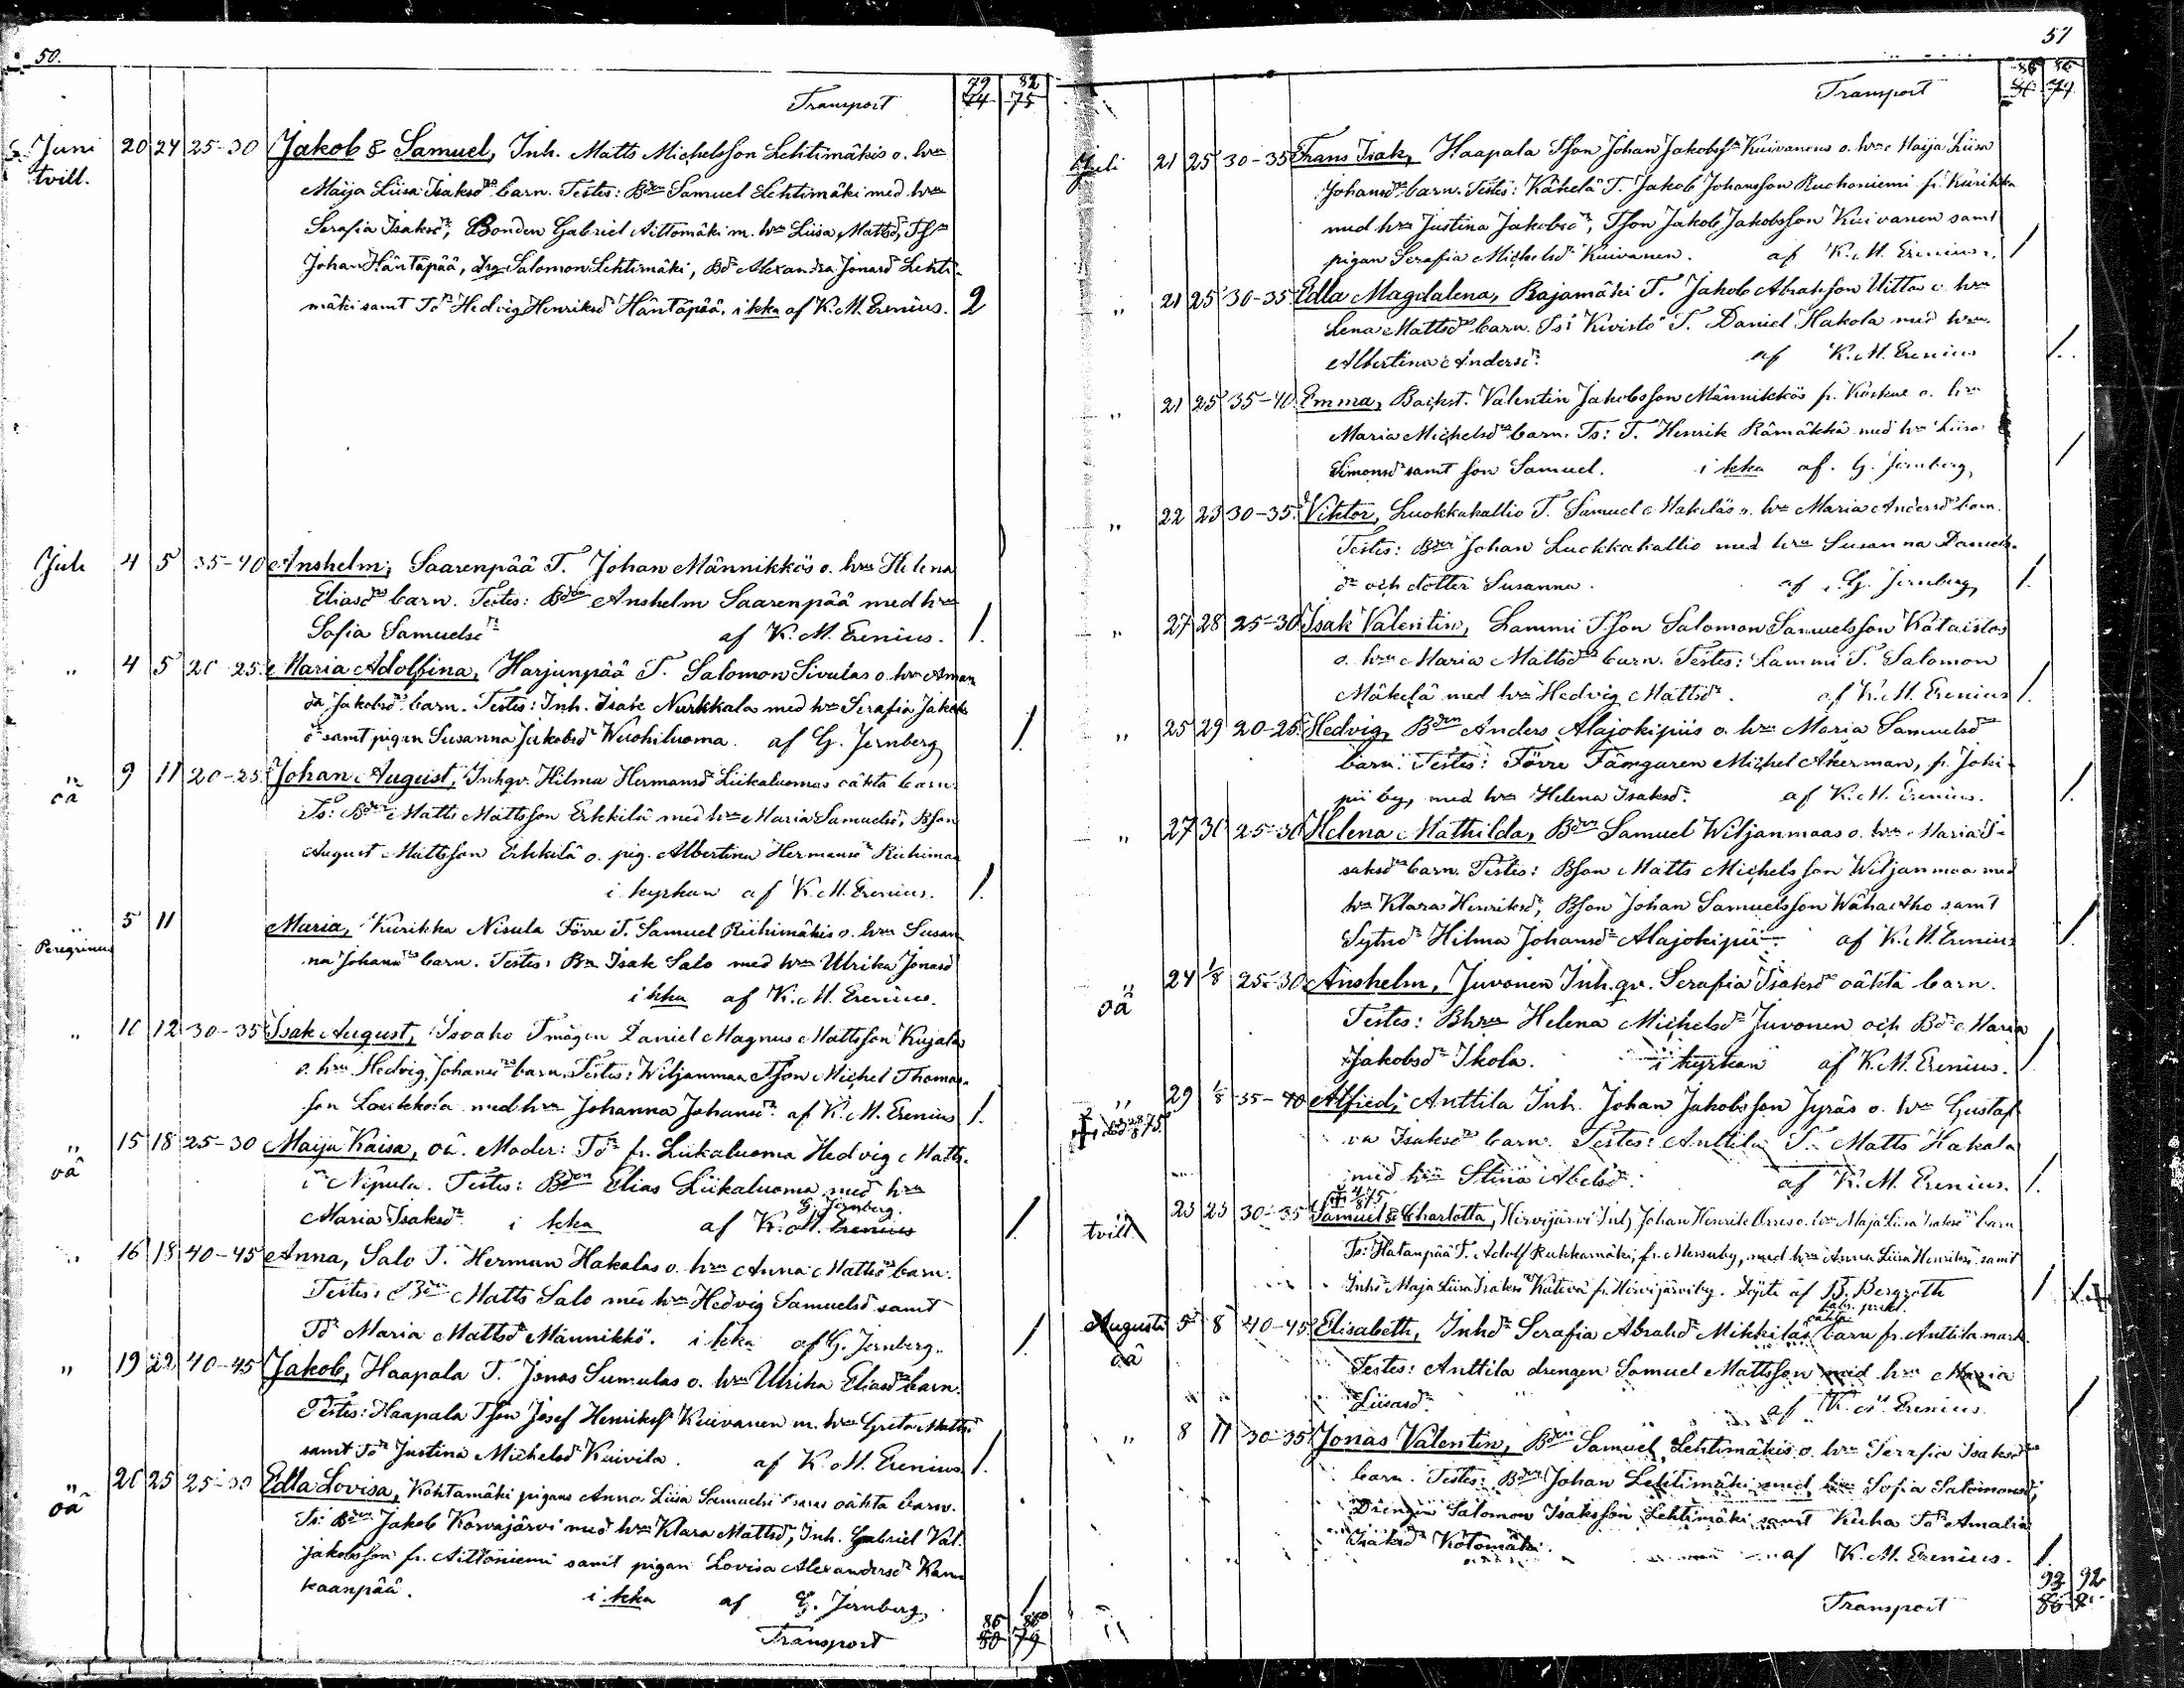 50.
Transport 79 82
74 75
Juni 20 24 25-30 Jakob & Samuel, Inh. Matts Michelsson Lehtimäkis o. hru
tvill. Maija Liisa Isaksdrs barn. Testes: Bden Samuel Lehtimäki med hru
Serafia Isaksdr, Bonden Gabriel Aittomäki m. hru Liisa Mattsd,
Johan Häntäpää, drg Salomon Lehtimäki, Bdr Alexandra Jonasd Lehti-
mäki samt Tdr Hedvig Henriksd Häntäpää, i kka af K. M. Erenius. 2
Juli 4 5 35-40 Anshelm, Saarenpää T. Johan Männikkös o. hru Helena
Eliasdrs barn. Testes: Bden Anshelm Saarenpää med hru
Sofia Samuelsdr af K. M. Erenius. 1.
" 4 5 20-25 Maria Adolfina, Harjunpää T. Salomon Sivulas o. hru Aman
da Jakobsdrs barn. Testes: Inh. Isak Nurkkala med hru Serafia Jakobs
dr samt pigan Susanna Jakobsdr Wuohiluoma. af G. Jernberg 1
" 9 11 20-25 Johan August, Inhqv. Hilma Hermansd Liikaluomas oäkta barn.
oä Ts: Bden Matts Mattsson Erkkilä med hru Maria Samuelsd, Bson
August Mattsson Erkkilä o. pig. Albertina Hermansdr Riihimaa
i kyrkan af K. M. Erenius. 1.
" 5 11 Maria, Kurikka Nisula Förre T. Samuel Riihimäkis o. hru Susan
Peregrinus na Johansdrs barn. Testes: Bn Isak Salo med hru Ulrika Jonasd
i kka af K. M. Erenius.
" 10 12 30-35 Isak August, Isoaho Tmågen Daniel Magnus Mattsson Kujalas
o. hru Hedvig Johansdrs barn. Testes: Wiljanmaa Tson Michel Thomas-
son Loukkola med hru Johanna Johansdr. af K. M. Erenius 1.
" 15 18 25-30 Maija Kaisa, oä. Moder: Tdr fr. Liikaluoma Hedvig Matts-
oä dr Näpula. Testes: Bden Elias Liikaluoma med hru
G. Jernberg.
Maria Isaksdr i kka af K. M. Erenius 1.
" 16 18 40-45 Anna, Salo T. Herman Hakalas o. hru Anna Mattsdrs barn.
Testes: Bden Matts Salo med hru Hedvig Samuelsd samt
Tdr Maria Mattsdr Männikkö. i kka af G. Jernberg. 1
" 19 22 40-45 Jakob, Haapala T. Jonas Sumulas o. hru Ulrika Eliasdrs barn.
Testes: Haapala Tson Josef Henrikss Kuivanen m. hru Greta Mattsd
samt Tdr Justina Michelsdr Kuivila. af K. M. Erenius 1.
" 20 25 25-30 Edla Lovisa, Köhtamäki pigans Anna Liisa Samuelsdrs oäkta barn.
oä Ts: Bden Jakob Korvajärvi med hru Klara Mattsd, Inh. Gabriel Val.
Jakobsson fr. Aittoniemi samt pigan Lovisa Alexandersdr Kan
kaanpää. i kka af G. Jernberg 1
Transport 86 86
80 79
51
Transport 86 86
Juli 21 25 30-35 Frans Isak, Haapala Tson Johan Jakobss Kuivanens o. hru Maija Liisa
Johansdrs barn. Testes: Käkelä T. Jakob Johansson Ruohoniemi fr. Kurikka
med hru Justina Jakobsdr, Tson Jakob Jakobsson Kuivanen samt
pigan Serafia Michelsdr Kuivanen. af K. M. Erenius. 1
" 21 25 30-35 Edla Magdalena, Rajamäki T. Jakob Abrahsson Uittos o. hru
Lena Mattsdrs barn. Ts: Kivistö T. Daniel Hakola med hru
Albertina Andersdr. af K. M. Erenius 1.
" 21 25 35-40 Emma, Backst. Valentin Jakobsson Männikkös fr. Koskue o. hru
Maria Michelsdrs barn. Ts: T. Henrik Rämäkkä med hru Liisa
Simonsdr samt son Samuel. i kka af. G. Jernberg, 1
" 22 23 30-35 Viktor, Luokkakallio T. Samuel Mäkeläs o. hru Maria Andersdrs barn.
Testes: Bden Johan Luokkakallio med hru Susanna Daniels-
dr och dotter Susanna. af G. Jernberg 1.
" 27 28 25-30 Isak Valentin, Lammi Tson Salomon Samuelsson Kataistos
o. hru Maria Mattsdrs barn. Testes: Lammi T. Salomon
Mäkelä med hru Hedvig Mattsdr. af K. M. Erenius 1.
" 25 29 20-25 Hedvig, Bden Anders Alajokipiis o. hru Maria Samuelsdrs
barn. Testes: Förre Färgaren Michel Åkerman, fr. Joki-
pii by, med hru Helena Isaksdr. af K. M. Erenius. 1.
" 27 31 25-30 Helena Mathilda, Bden Samuel Wiljanmaas o. hru Maria I-
saksdrs barn. Testes: Bson Matts Michelsson Wiljanmaa med
hru Klara Henriksd, Bson Johan Samuelsson Wähäaho samt
Sytnd Hilma Johansdr Alajokipii. af K. M. Erenius 1.
" 24 1/8 25-30 Anshelm, Juvonen Inh.qv. Serafia Isaksdrs oäkta barn.
oä Testes: Bhru Helena Michelsdr Juvonen och Bdr Maria
Jakobsdr Ikola. i kyrkan af K. M. Erenius. 1
" 29 1/8 35-40 Alfred, Anttila Inh. Johan Jakobsson Jyräs o. hru Gustaf
va Isaksdrs barn. Testes: Anttila T. Matts Hakala
med hru Stina Abelsd. af K. M. Erenius. 1.
23 23 30-35 Samuel & Charlotta, Hirvijärvi Inh. Johan Henrik Orres o. hru Maja Liisa Isaksdrs barn
tvill. Ts: Hatanpää T. Adolf Rukkamäki, fr. Mieruby, med hru Anna Liisa Henriksd samt
Inhd Maja Liisa Isaksd Kativa fr. Hirvijärviby. Döpte af B. Bergroth 1 1.
Augusti 5 8 40-45 Elisabeth, Inhdr Serafia Abrahdr Mikkiläs oäkta barn fr. Anttila mark
oä Testes: Anttila drengen Samuel Mattsson med hru Maria
Liisasdr. af K. M. Erenius. 1
" 8 11 30-35 Jonas Valentin, Bden Samuel Lehtimäkis o. hru Serafia Isaksdrs
barn. Testes: Bden Johan Lehtimäki med hru Sofia Salomonsd,
Drengen Salomon Isaksson Lehtimäki samt Kuha Tdr Amalia
Isaksdr Kotomäki. af K. M. Erenius. 1.
Transport 93 92